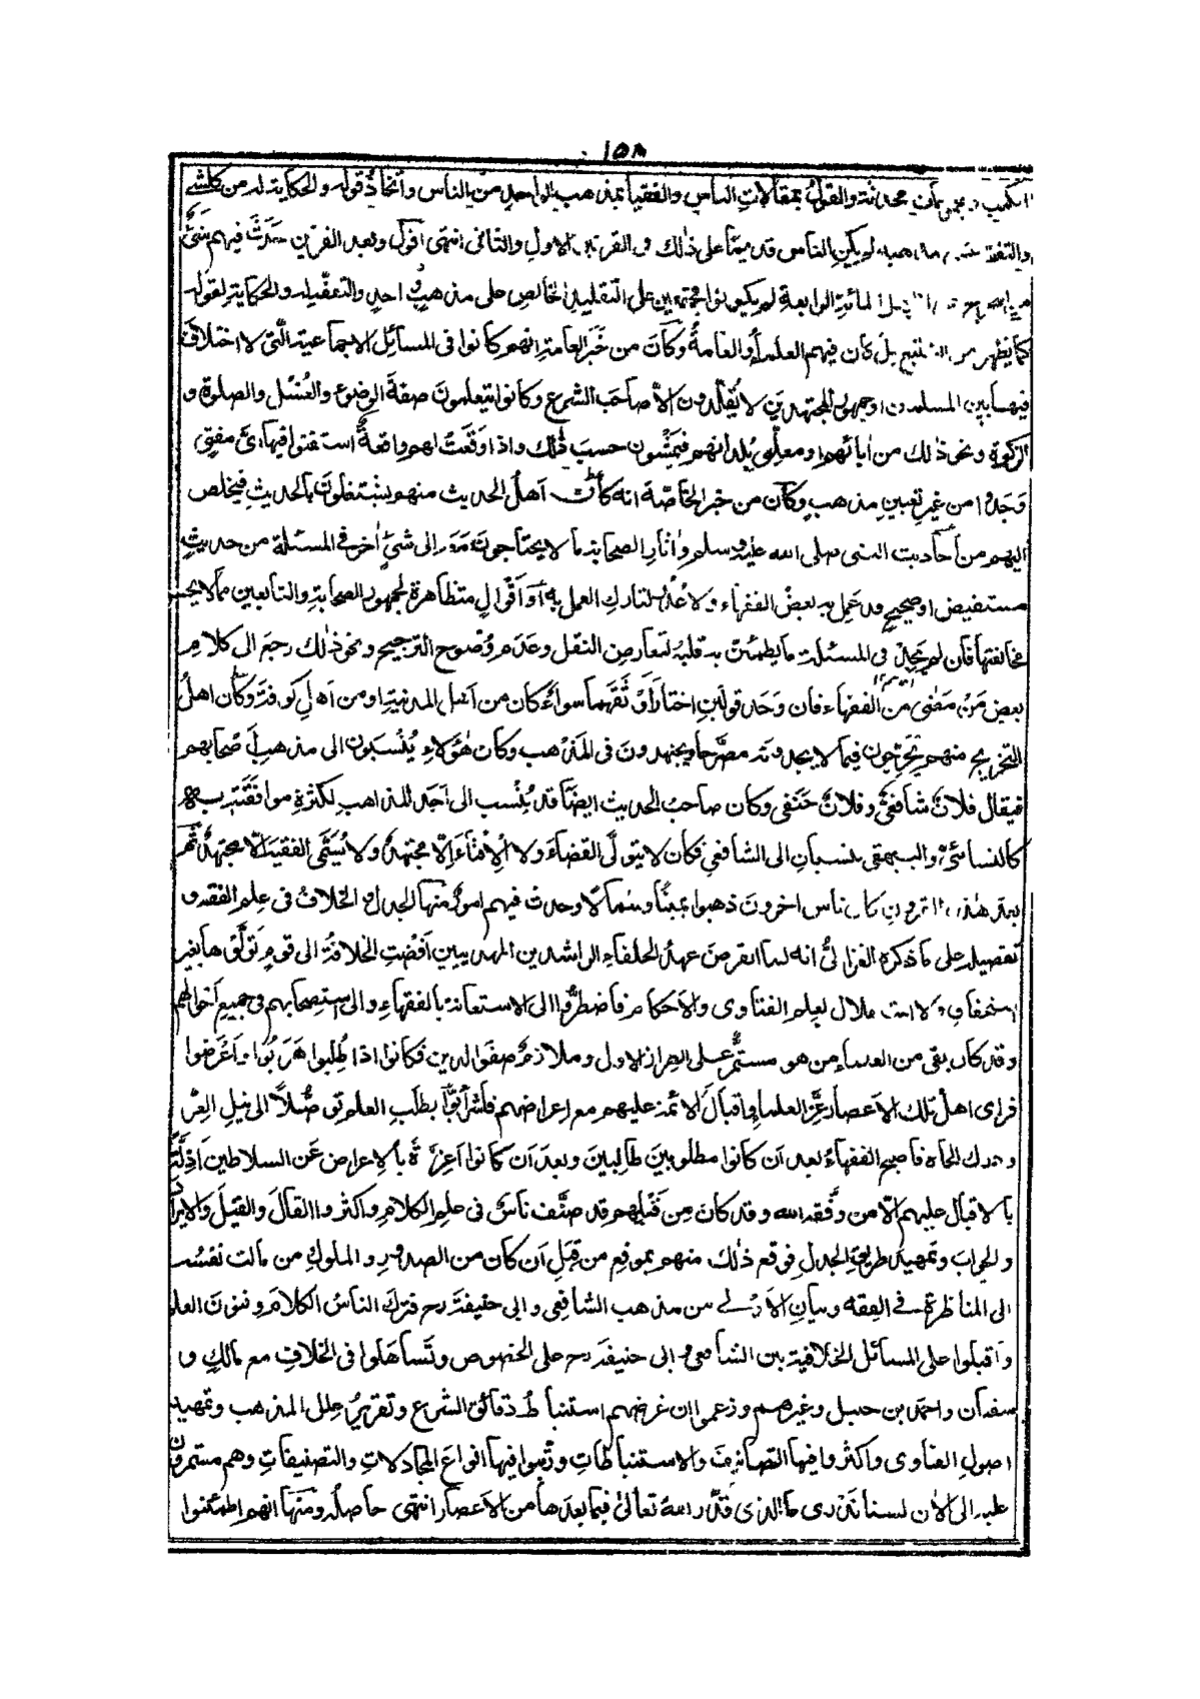 ١٥٨
الكتب والمجموعات محدثة والقول بمقالات الناس والفتيا بمذهب الواحد من الناس واتخاذ قوله والحكاية له من كل شئ
والتفقه على مذهبه لم يكن الناس قديما على ذلك فى القرنين الاول والثانى انتهى اقول وبعد القرنين حدث فيهم شئ
من التخريج غير ان اهل المائة الرابعة لم يكونوا مجتمعين على التقليد الخالص على مذهب واحد والتفقه له والحكاية لقوله
كما يظهر من التتبع بل كان فيهم العلماء والعامة وكان من خبر العامة انهم كانوا فى المسائل الاجماعية التى لا اختلاف
فيها بين المسلمين او جمهور المجتهدين لا يقلدون الا صاحب الشرع وكانوا يتعلمون صفة الوضوء والغسل والصلوة و
الزكوة ونحو ذلك من ابائهم او معلمى بلدانهم فيمشون حسب ذلك واذا وقعت لهم واقعة استفتوا فيها اى مفتى
وجدوا من غير تعيين مذهب وكان من خبر الخاصة انه كان اهل الحديث منهم يشتغلون بالحديث فيخلص
اليهم من احاديث النبى صلى الله عليه وسلم واثار الصحابة ما لا يحتاجون معه الى شئ اخر فى المسئلة من حديث
مستفيض او صحيح قد عمل به بعض الفقهاء ولا عذر لتارك العمل به او اقوال متظاهرة لجمهور الصحابة والتابعين مما لا يحسن
مخالفتها فان لم يجد فى المسئلة ما يطمئن به قلبه لتعارض النقل وعدم وضوح الترجيح ونحو ذلك رجع الى كلام
بعض من مضى من الفقهاء فان وجد قولين اختار اوثقهما سواء كان من اهل المدينة او من اهل كوفة وكان اهل
التخريج منهم يخرجون فيما لا يجدونه مصرحا ويجتهدون فى المذهب وكان هؤلاء ينسبون الى مذهب اصحابهم
فيقال فلان شافعى وفلان حنفى وكان صاحب الحديث ايضا قد ينسب الى احد المذاهب لكثرة موافقته به
كالنسائى والبيهقى ينسبان الى الشافعى فكان لا يتولى القضاء ولا الافتاء الا مجتهد ولا يسمى الفقيه الا مجتهد ثم
بعد هذه القرون كان ناس اخرون ذهبوا يمينا وشمالا وحدث فيهم امور منها الجدل والخلاف فى علم الفقه و
تفصيله على ما ذكره الغزالى انه لما انقرض عهد الخلفاء الراشدين المهديين افضت الخلافة الى قوم تولوها بغير
استحقاق ولا استقلال بعلم الفتاوى والاحكام فاضطروا الى الاستعانة بالفقهاء والى استصحابهم فى جميع احوالهم
وقد كان بقى من العلماء من هو مستمر على الطراز الاول وملازم صفو الدين فكانوا اذا طلبوا هربوا واعرضوا
فراى اهل تلك الاعصار عز العلماء واقبال الائمة عليهم مع اعراضهم فاشرأبوا بطلب العلم توصلا الى نيل العز
ودرك الجاه فاصبح الفقهاء بعد ان كانوا مطلوبين طالبين وبعد ان كانوا اعزة بالاعراض عن السلاطين اذلة
بالاقبال عليهم الا من وفقه الله وقد كان من قبلهم قد صنف ناس فى علم الكلام واكثروا القال والقيل والايراد
والجواب وتمهيد طريق الجدل فوقع ذلك منهم بموقع من قبل ان كان من الصدور والملوك من مالت نفسه
الى المناظرة فى الفقه وبيان الاولى من مذهب الشافعى وابى حنيفة رح فترك الناس الكلام وفنون العلم
واقبلوا على المسائل الخلافية بين الشافعى وابى حنيفة رح على الخصوص وتساهلوا فى الخلاف مع مالك و
سفيان واحمد بن حنبل وغيرهم وزعموا ان غرضهم استنباط دقائق الشرع وتقرير علل المذهب وتمهيد
اصول الفتاوى واكثروا فيها التصانيف والاستنباطات ورتبوا فيها انواع المجادلات والتصنيفات وهم مستمرون
عليه الى الان لسنا ندرى ما الذى قدر الله تعالى فيما بعدها من الاعصار انتهى حاصله ومنها انهم اطمئنوا